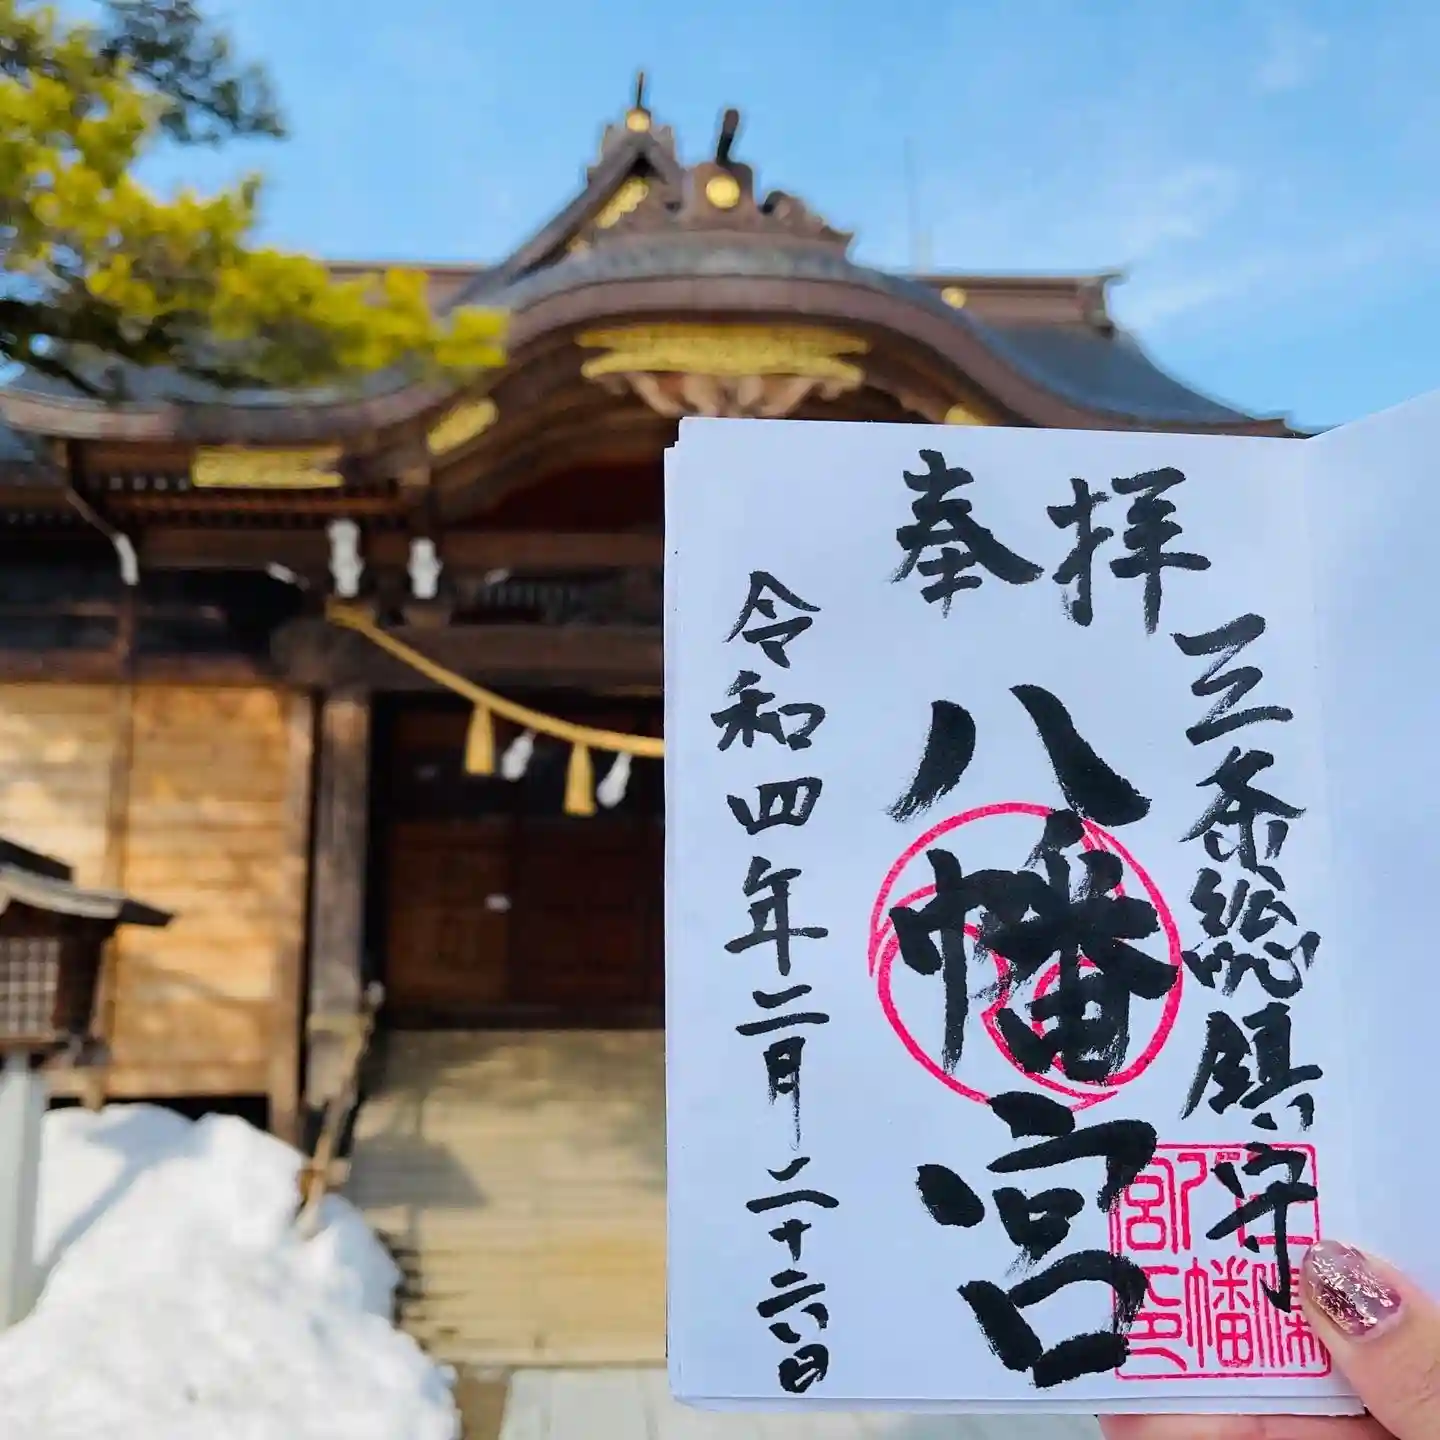 奉拝
三条総鎮守
八幡宮
令和四年二月二十六日
三条八幡宮印